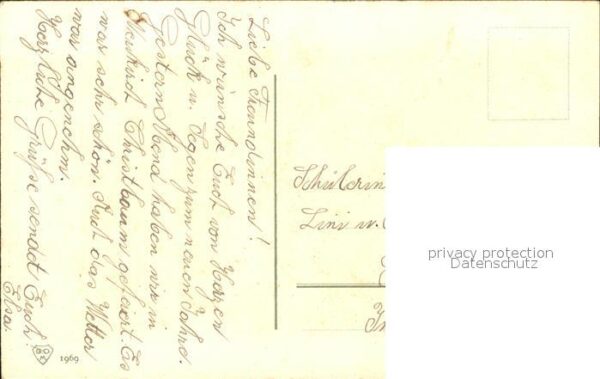 Liebe Freundinnen!
Ich wünsche Euch von Herzen
Glück u. Segen zum neuen Jahre.
Gestern Abend haben wir in
Christbaum gefeiert. Es
war sehr schön. Auch das Wetter
war angenehm.
Herzliche Grüße sendet Euch
Elsa.
Schülerin
Lini u.
privacy protection
Datenschutz
1969